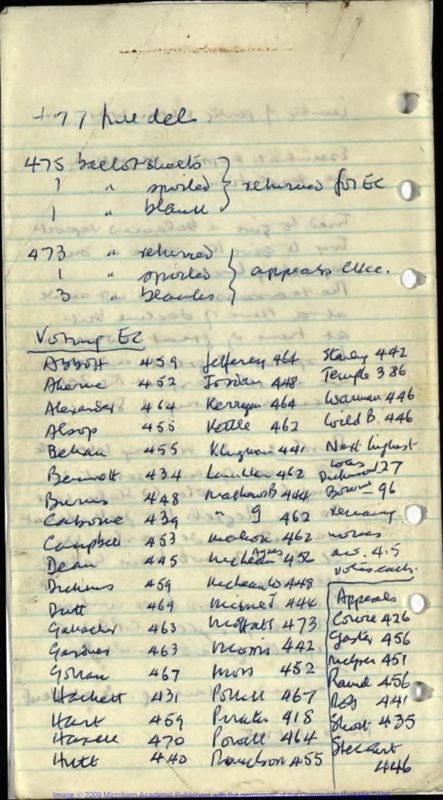 477 full dels
475 ballot sheets
1 " spoiled } returned for EC
1 " blank
473 " returned
1 " spoiled } appeals cttee.
3 " blanks
Voting EC
Abbott 459
Aherne 452
Alexander 464
Alsop 455
Behan 455
Bennett 434
Burns 448
Caborne 439
Campbell 453
Dean 445
Dickens 459
Dutt 469
Gallacher 463
Gardner 463
Gollan 467
Hackett 431
Hart 459
470
Hutt 440
Jefferey 464
Jordan 448
Kerrigan 464
Kettle 462
Klugmann 441
Lauchlan 462
Mathews B 444
" G 462
Mahon 462
McLean Agnes 452
McLean W 448
T 444
Moffatt 473
Morris 442
Moss 452
Pollitt 467
418
Powell 464
455
442
Temple 386
Wainman 446
Wild B. 446
Next highest
was
27
Bourne 96
Remaining
nos
av. 4.5
votes each.
Appeals
Cowie 426
Gaster 456
451
Rand 456
Rob 441
Short 435
Stewart
446
Image © 2009 Microform Academic Publishers with the permission of the Communist Party of Britain